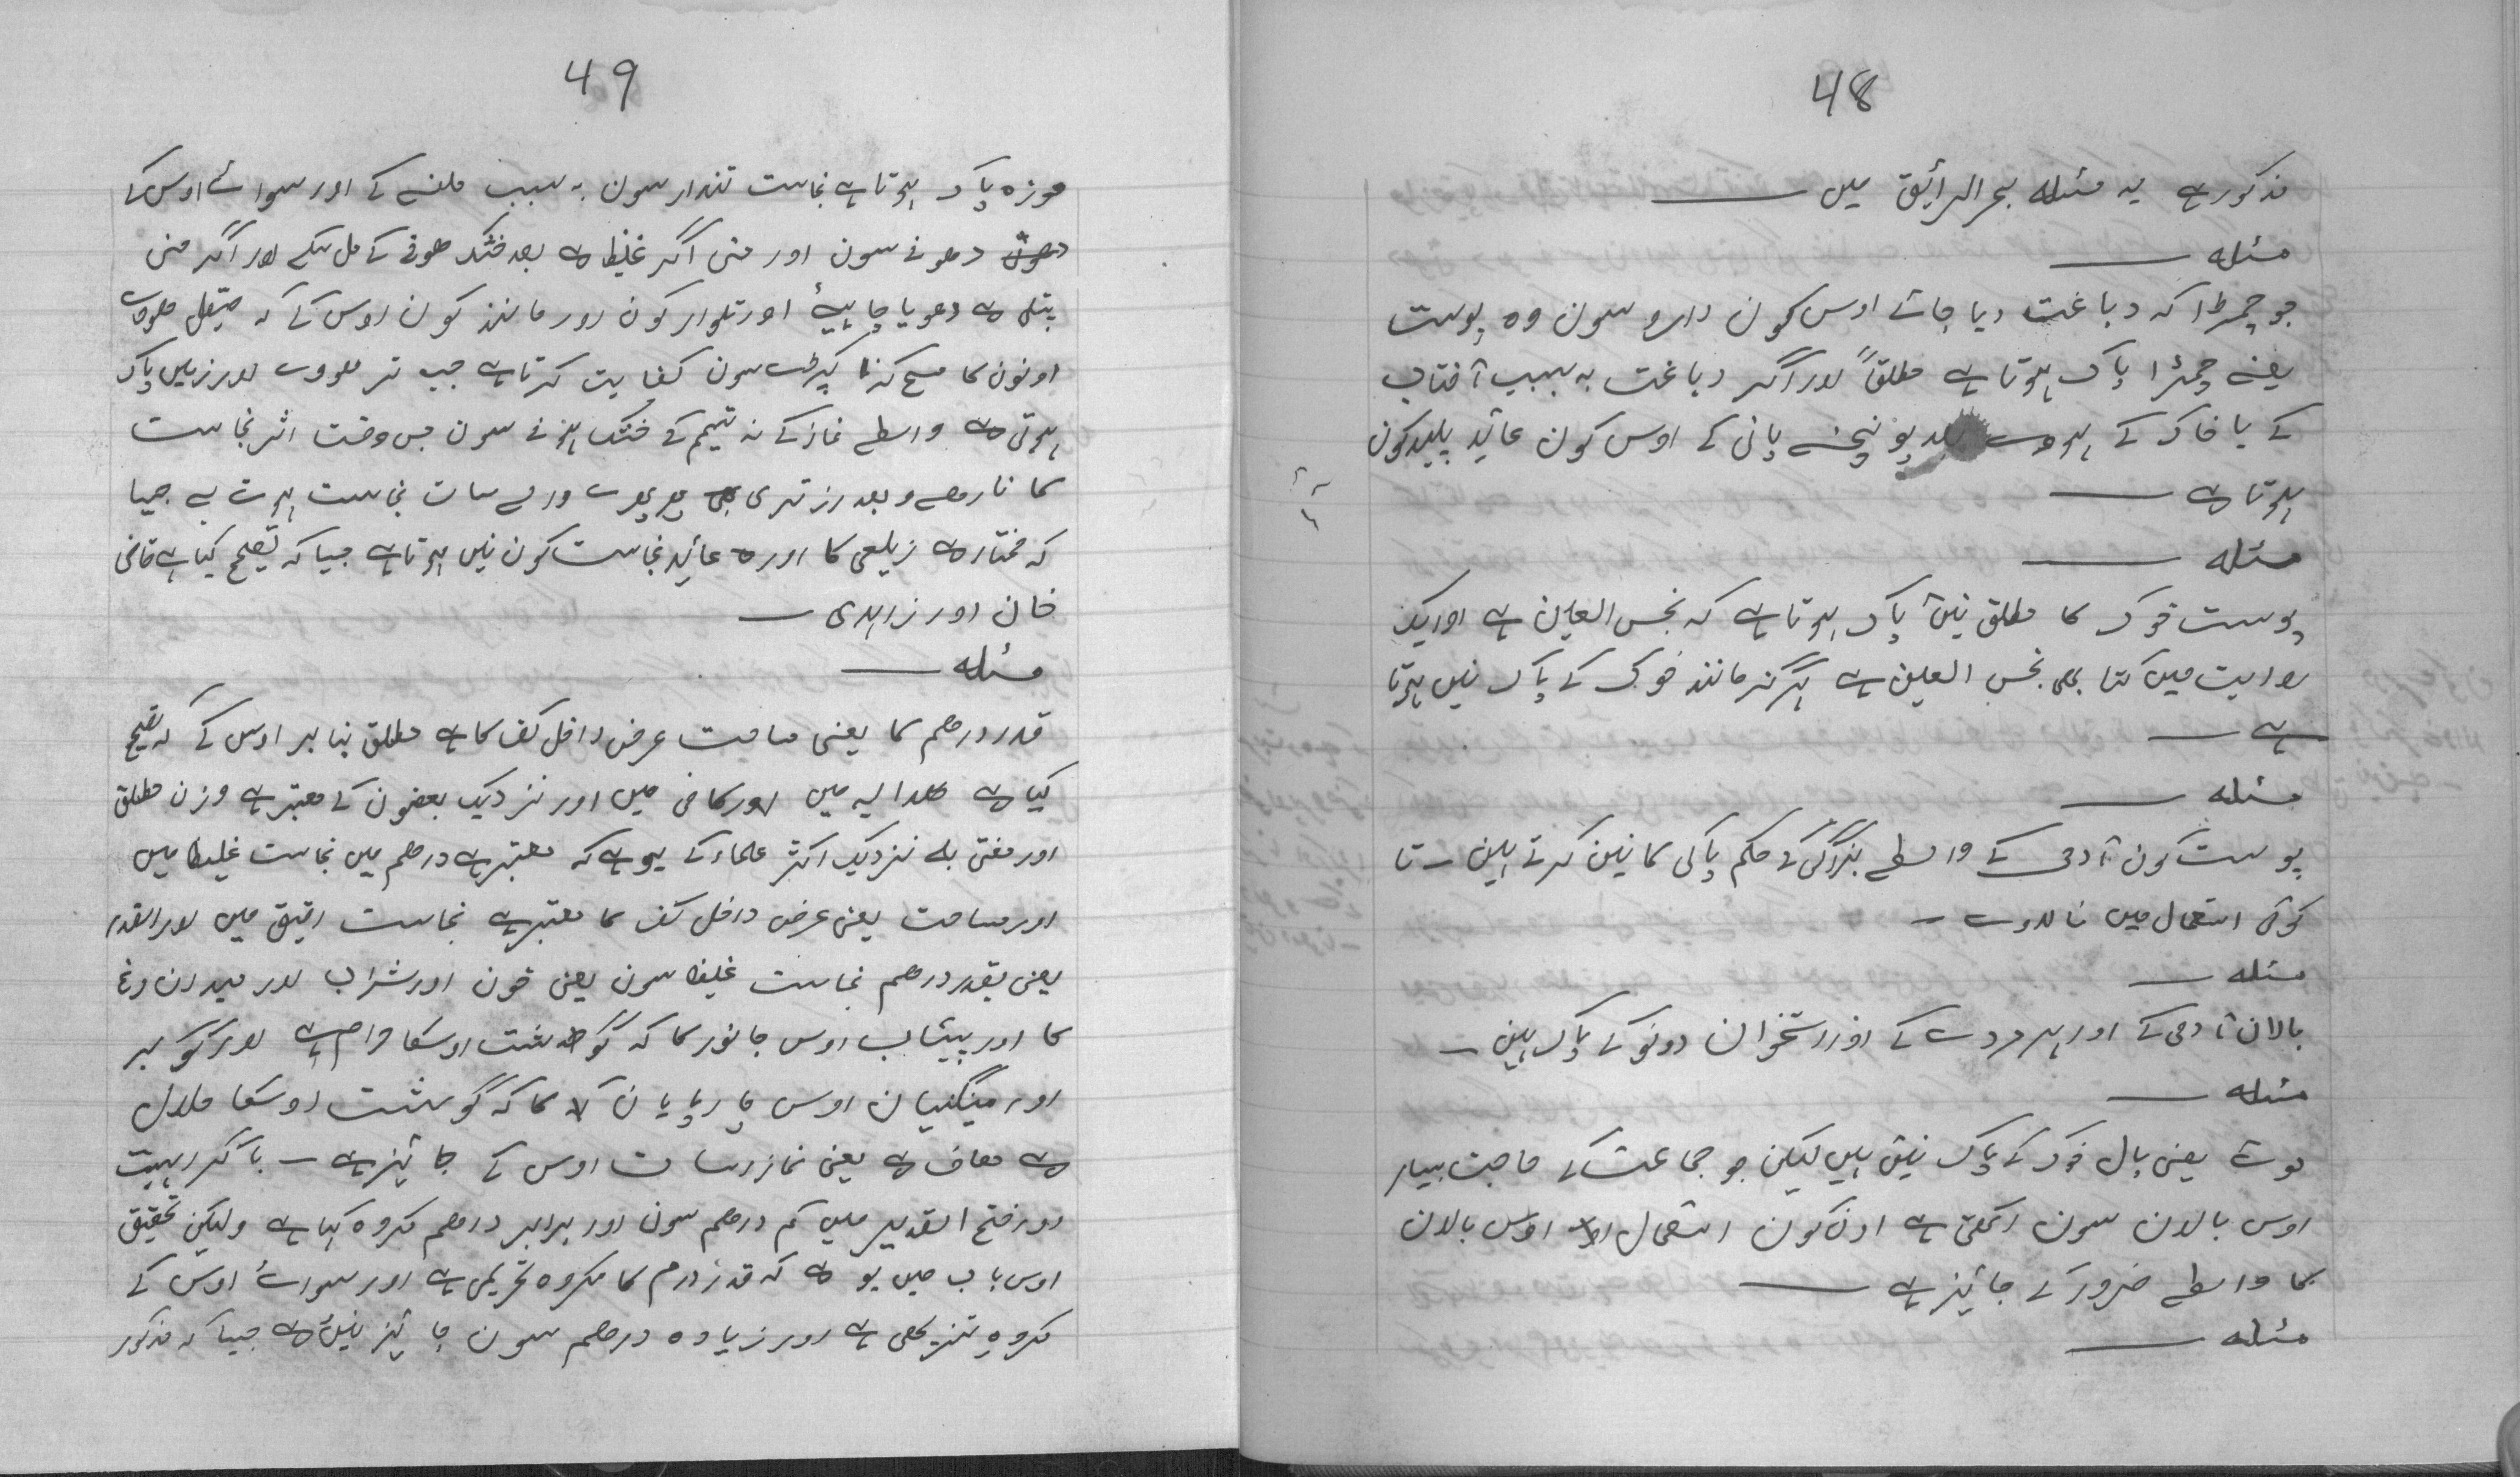 48
مذکور ہے یہ مسئلہ بحر الرائق میں ـــ
مسئلہ ـــ
جو چمڑا کہ دباغت دیا جائے اوس کون دارو سون وہ پوست
یعنے چمڑا پاک ہوتا ہے مطلقاً اور اگر دباغت بہ سبب آفتاب
کے یا خاک کے ہووے بعد پونچنے پانی کے اوس کون عائد پلید کون
ہوتا ہے ـــ
مسئلہ ـــ
پوست خوک کا مطلق نیں پاک ہوتا ہے کہ نجس العین ہے اور ایک
روایت میں کتا بھی نجس العین ہے ہرگز مانند خوک کے پاک نیں ہوتا
ہے ـــ
مسئلہ ـــ
پوست کون آدمی کے واسطے بزرگی کے حکم پاکی کا نیں کرتے ہیں ـ تا
کوئی استعمال میں نا لاوے ـ
مسئلہ ـــ
بالان آدمی کے اور ہر مردے کے اور استخوان دونو کے پاک ہیں ـ
مسئلہ ـــ
موئے یعنی بال خوک کے پاک نیں ہیں لیکن جو جماعت کے حاجت بسیار
اوس بالان سون رکھتی ہے اون کون استعمال اوس بالان
کا واسطے ضرور کے جائیز ہے ـــ
مسئلہ ـــ
49
موزہ پاک ہوتا ہے نجاست تندار سون بہ سبب ملنے کے اور سوائے اوس کے
دھونے سون اور منی اگر غلیظ ہے بعد خشک ھونے کے مل سکے اور اگر منی
پتلی ہے دھویا چاہیئے اور تلوار کون اور مانند کون اوس کے کہ صیقل ھووے
اونون کا مسح کرنا کپڑے سون کفایت کرتا ہے جب تر ھووے اور زمیں پاک
ہوتی ہے واسطے نماز کے نہ تیمم کے خشک ہونے سون جس وقت اثر نجاست
کا نارھے و بعد از تری سات نجاست جیسا
کہ مختار ہے زیلعی کا اور عائد نجاست کون نیں ہوتا ہے جیسا کہ تصحیح کیا ہے قاضی
خان اور زاہدی ـ
مسئلہ ـــ
قدر درھم کا یعنی مساحت عرض داخل کف کا ہے مطلق بنا بر اوس کے کہ تصحیح
کیا ہے ھدایہ میں اور کافی میں اور نزدیک بعضون کے معتبر ہے وزن مطلق
اور مفتی بہ نزدیک اکثر علماء کے یو ہے کہ معتبر ہے درھم میں نجاست غلیظ میں
اور مساحت یعنی عرض داخل کف کا معتبر ہے نجاست رقیق میں اور القدر
یعنی بقدر درھم نجاست غلیظ سون یعنی خون اور شراب اور
کا اور پیشاب اوس جانور کا کہ گوشت اوسکا حرام ہے اور گوبر
اور مینگنیان اوس چارپایان کا کہ گوشت اوسکا حلال
ہے معاف ہے یعنی نماز سات اوس کے جائیز ہے ـ با کراہیت
اور فتح القدیر میں کم درھم سون اور برابر درھم مکروہ کہا ہے ولیکن تحقیق
اوس باب میں یو ہے کہ قدر درم کا مکروہ تحریمی ہے اور سوائے اوس کے
مکروہ تنزیھی ہے اور زیادہ درھم سون جائیز نیں ہے جیسا کہ مذکور